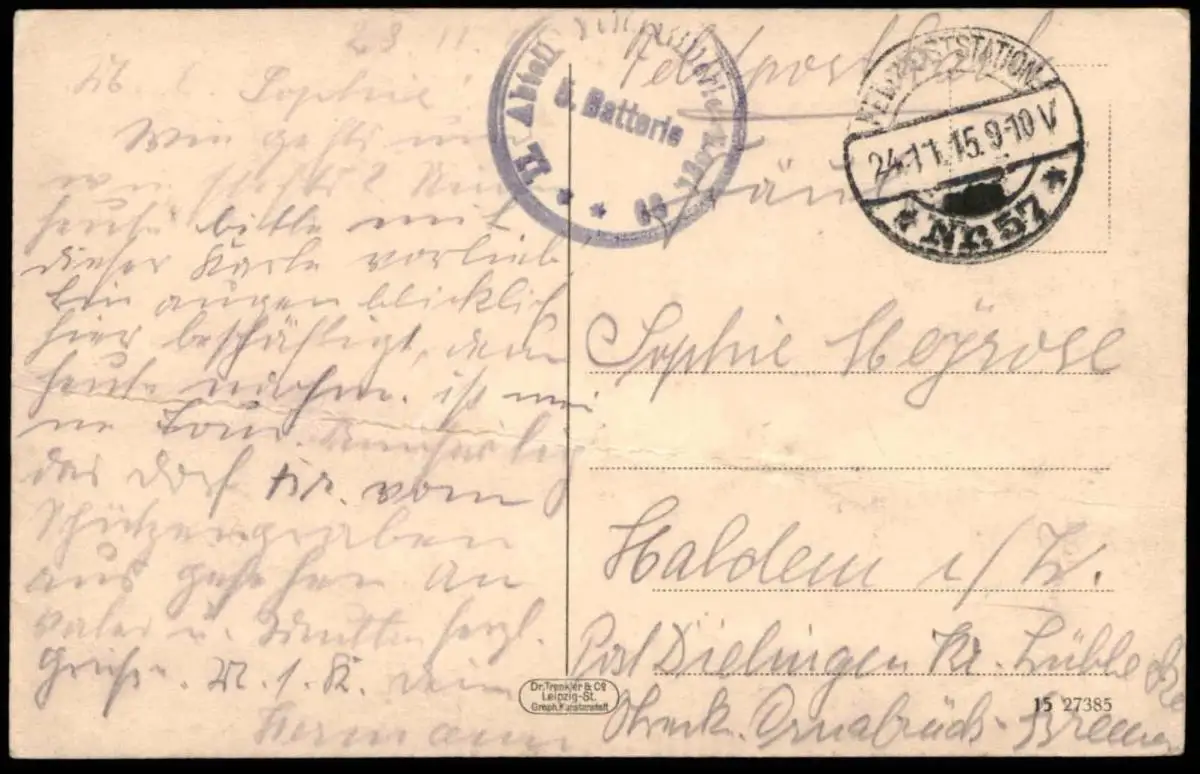 23 11
M. l. Sophie!
Wie gehts
heute bitte mit
dieser Karte vorlieb,
bin augenblicklich
hier beschäftigt, denn
heute nachm. ist mei
ne
das Dorf hier vom
Schützengraben
aus gesehen An
Vater u. Mutter herzl.
Grüße. M. l. K. dein
Hermann
II. Abteil
5. Batterie
Feldpost
FELDPOSTSTATION
24.11.15.9-10V
* Nr. 57 *
Fräul
Sophie Meyrose
Haldem i/W.
Post Dielingen Kr. Lübbe
Streck. Osnabrück-Bremen
Dr. Trenkler & Co
Leipzig-St.
Graph. Kunstanstalt
15 27385